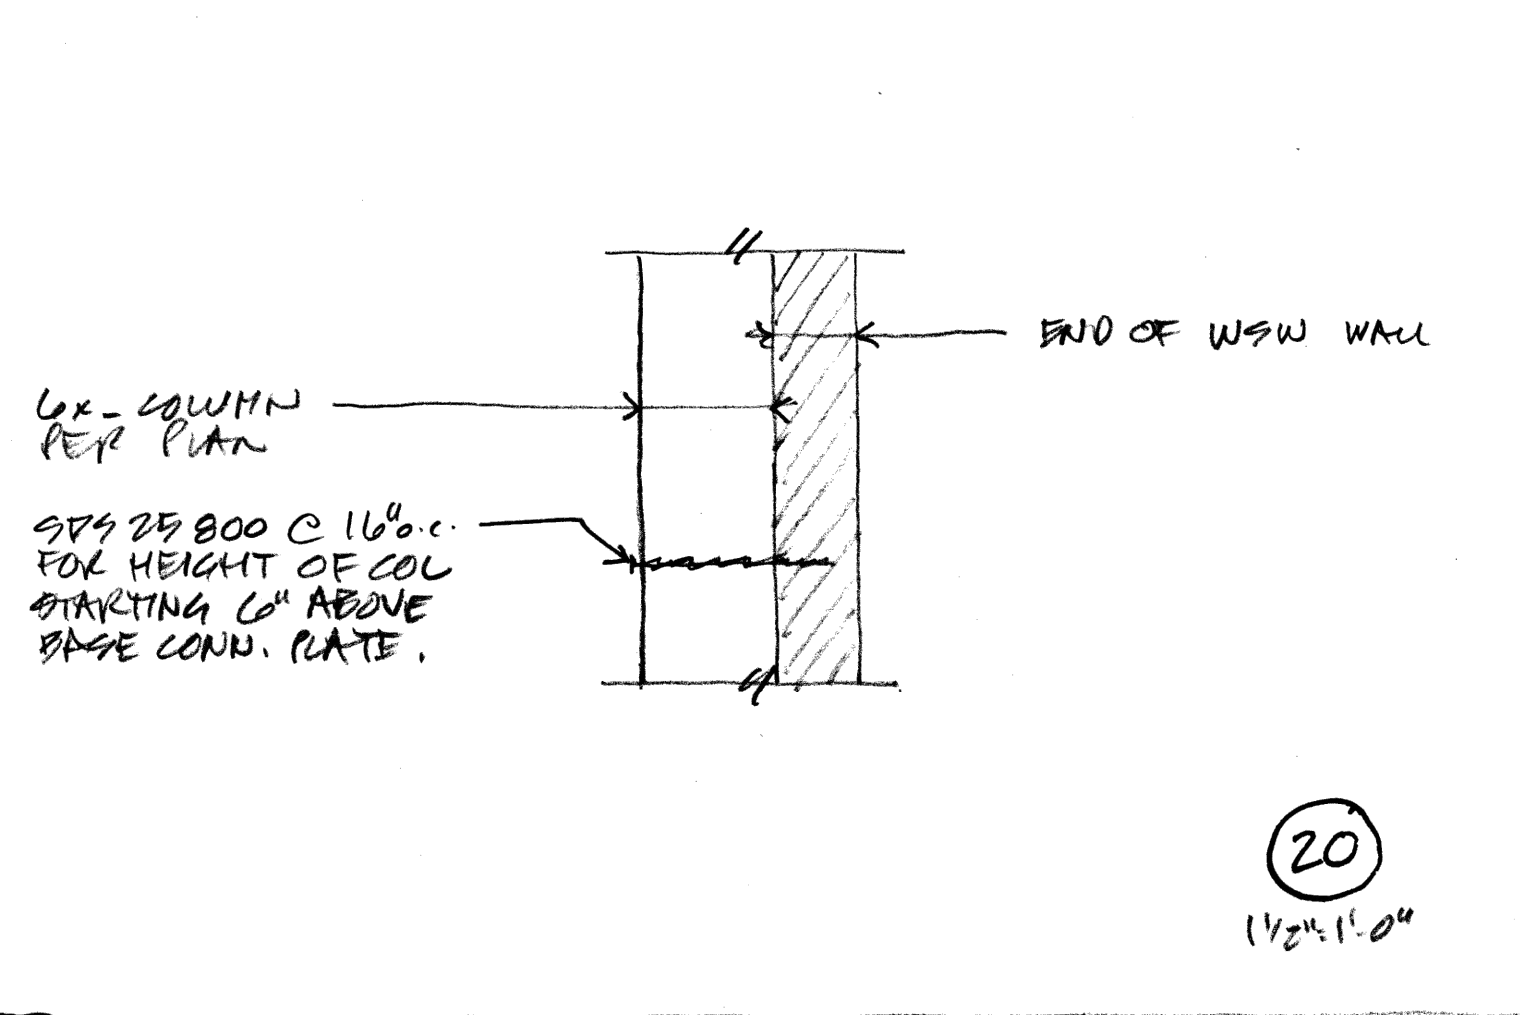 END OF WSW WALL
6x_ COLUMN
PER PLAN
SDS 25 800 @ 16" o.c.
FOR HEIGHT OF COL
STARTING 6" ABOVE
BASE CONN. PLATE.
20
1 1/2" = 1'-0"